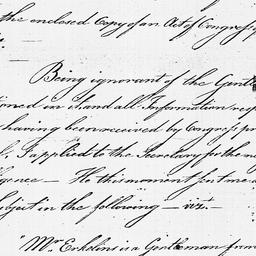 the enclosed Copy of an Act of Congress
Being ignorant of the Gentle
tioned in it and all Information resp
having been received by Congress pr
I applied to the Secretary for the ne
ligence — He this moment sent me a
ubject in the following — viz.—
"Mr. Erskins is a Gentleman from